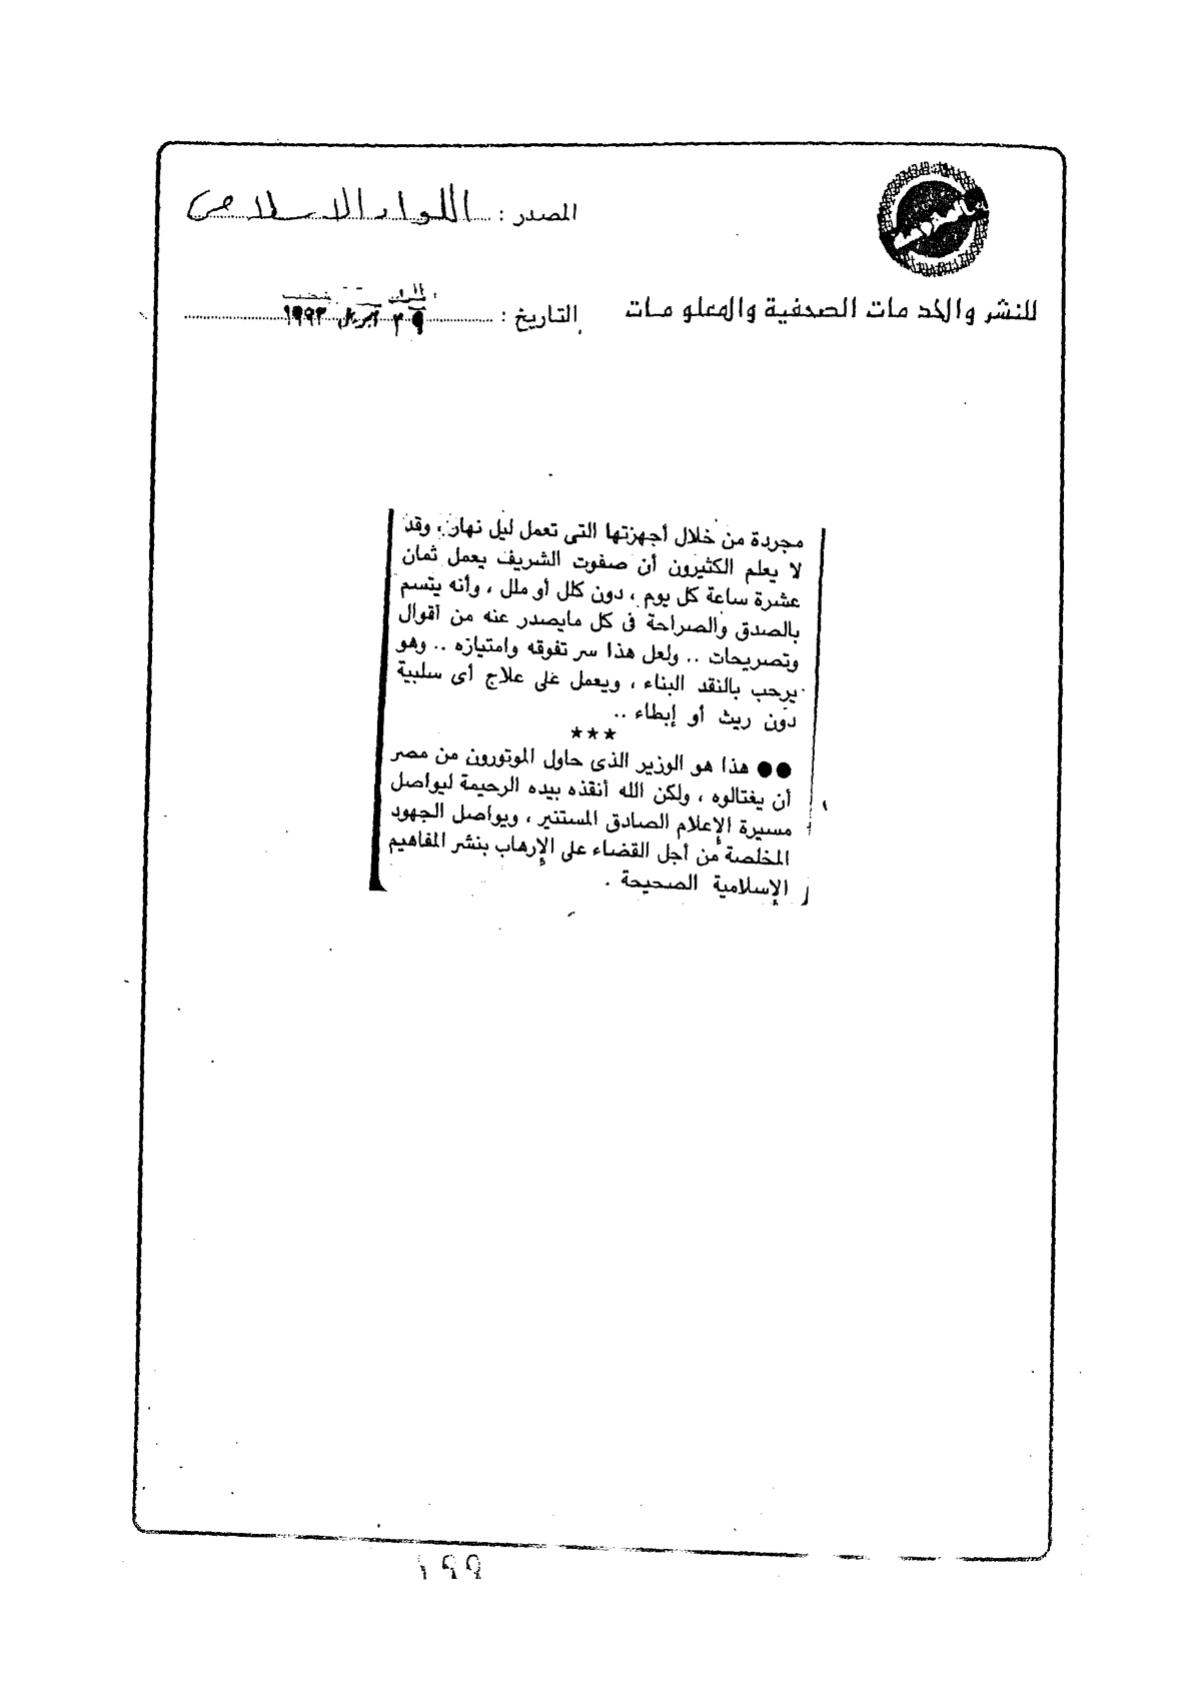 المصدر : اللواء الاسلامى
للنشر والخدمات الصحفية والمعلومات
التاريخ : ٢٩ أبريل ١٩٩٣
مجردة من خلال أجهزتها التى تعمل ليل نهار ، وقد
لا يعلم الكثيرون أن صفوت الشريف يعمل ثمان
عشرة ساعة كل يوم ، دون كلل أو ملل ، وأنه يتسم
بالصدق والصراحة فى كل مايصدر عنه من أقوال
وتصريحات .. ولعل هذا سر تفوقه وامتيازه .. وهو
يرحب بالنقد البناء ، ويعمل على علاج أى سلبية
دون ريث أو إبطاء ..
***
●● هذا هو الوزير الذى حاول الموتورون من مصر
أن يغتالوه ، ولكن الله أنقذه بيده الرحيمة ليواصل
مسيرة الإعلام الصادق المستنير ، ويواصل الجهود
المخلصة من أجل القضاء على الإرهاب بنشر المفاهيم
الإسلامية الصحيحة .